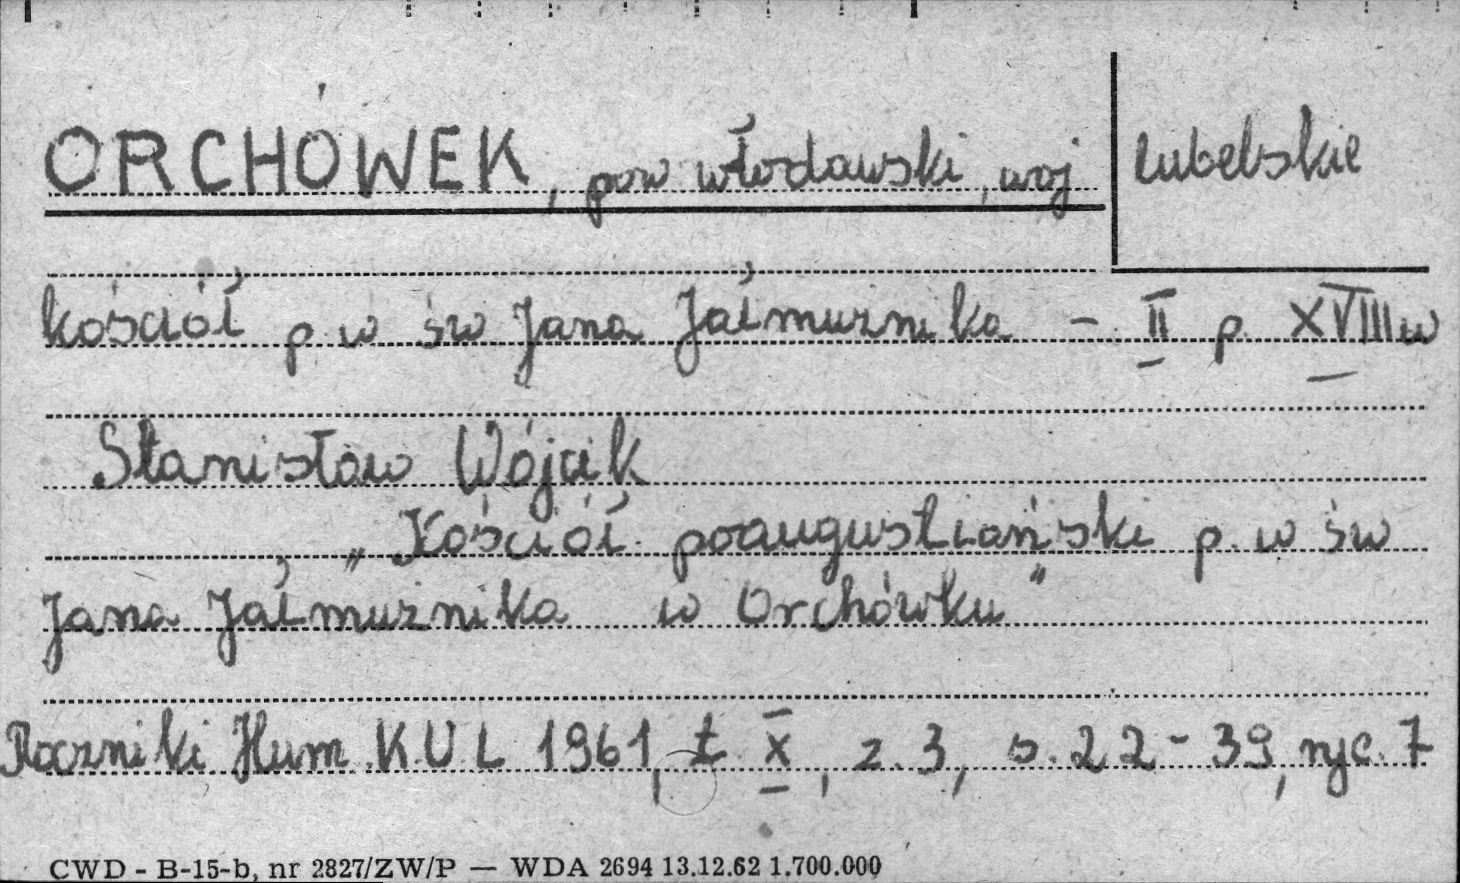 ORCHÓWEK, pow włodawski, woj lubelskie
kościół p.w św Jana Jałmużnika – II p. XVIII w
Stanisław Wójcik
„Kościół poaugustiański p.w św
Jana Jałmużnika w Orchówku"
Roczniki Hum. K.U.L 1961, t. X, z. 3, s. 22-39, ryc. 7
CWD - B-15-b, nr 2827/ZW/P — WDA 2694 13.12.62 1.700.000